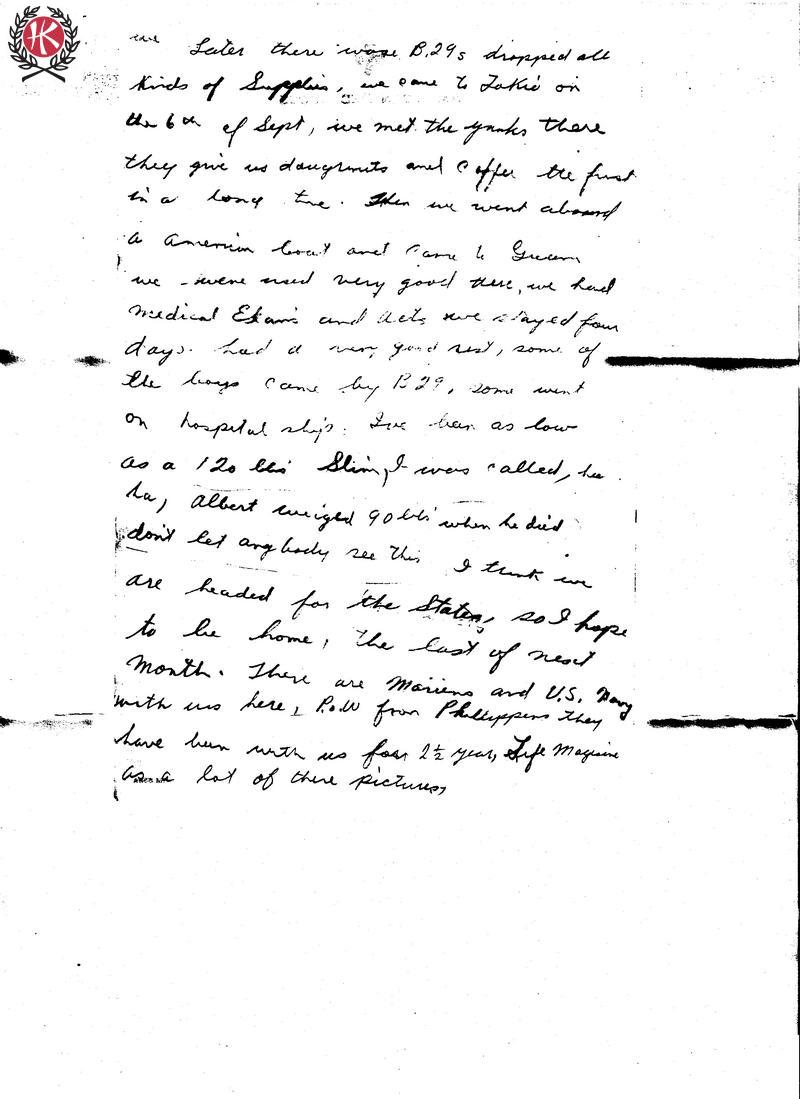 HK
we Later there was B.29s dropped all
kinds of Supplies, we came to Tokio on
the 6th of Sept, we met the yanks there
they give us doughnuts and Coffee the first
in a long time. Then we went aboard
a American boat and came to Guam
we were used very good there, we had
Medical Exams and we stayed four
days. had a very good rest, some of
the boys came by B29, some went
on hospital ship. I've been as low
as a 120 lbs Slim, I was called, ha
ha, Albert weiged 90 lbs when he died
don't let anybody see this I think we
are headed for the States, so I hope
to be home, the last of next
Month. There are Mariens and U.S. Navy
with us here, P.o.W from Phillippens they
have been with us for 2½ year, Life Magisine
as a lot of there pictures,